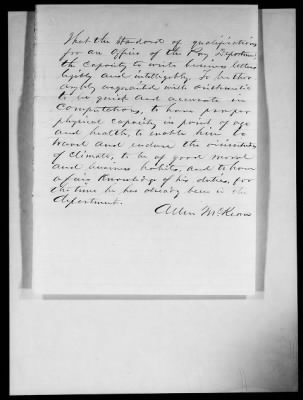 That the Standard of qualifications
for an Officer of the Pay Departmt
the capacity to write business letters
legibly and intelligibly. To be thor-
oughly acquainted with arithmetic
to be quick and accurate in
computations, to have proper
physical capacity in point of age
and health, to enable him to
travel and endure the vicissitudes
of Climate, to be of good moral
and business habits, and to have
a fair Knowledge of his duties, for
the time he has already been in the
department.
Allen McKeon